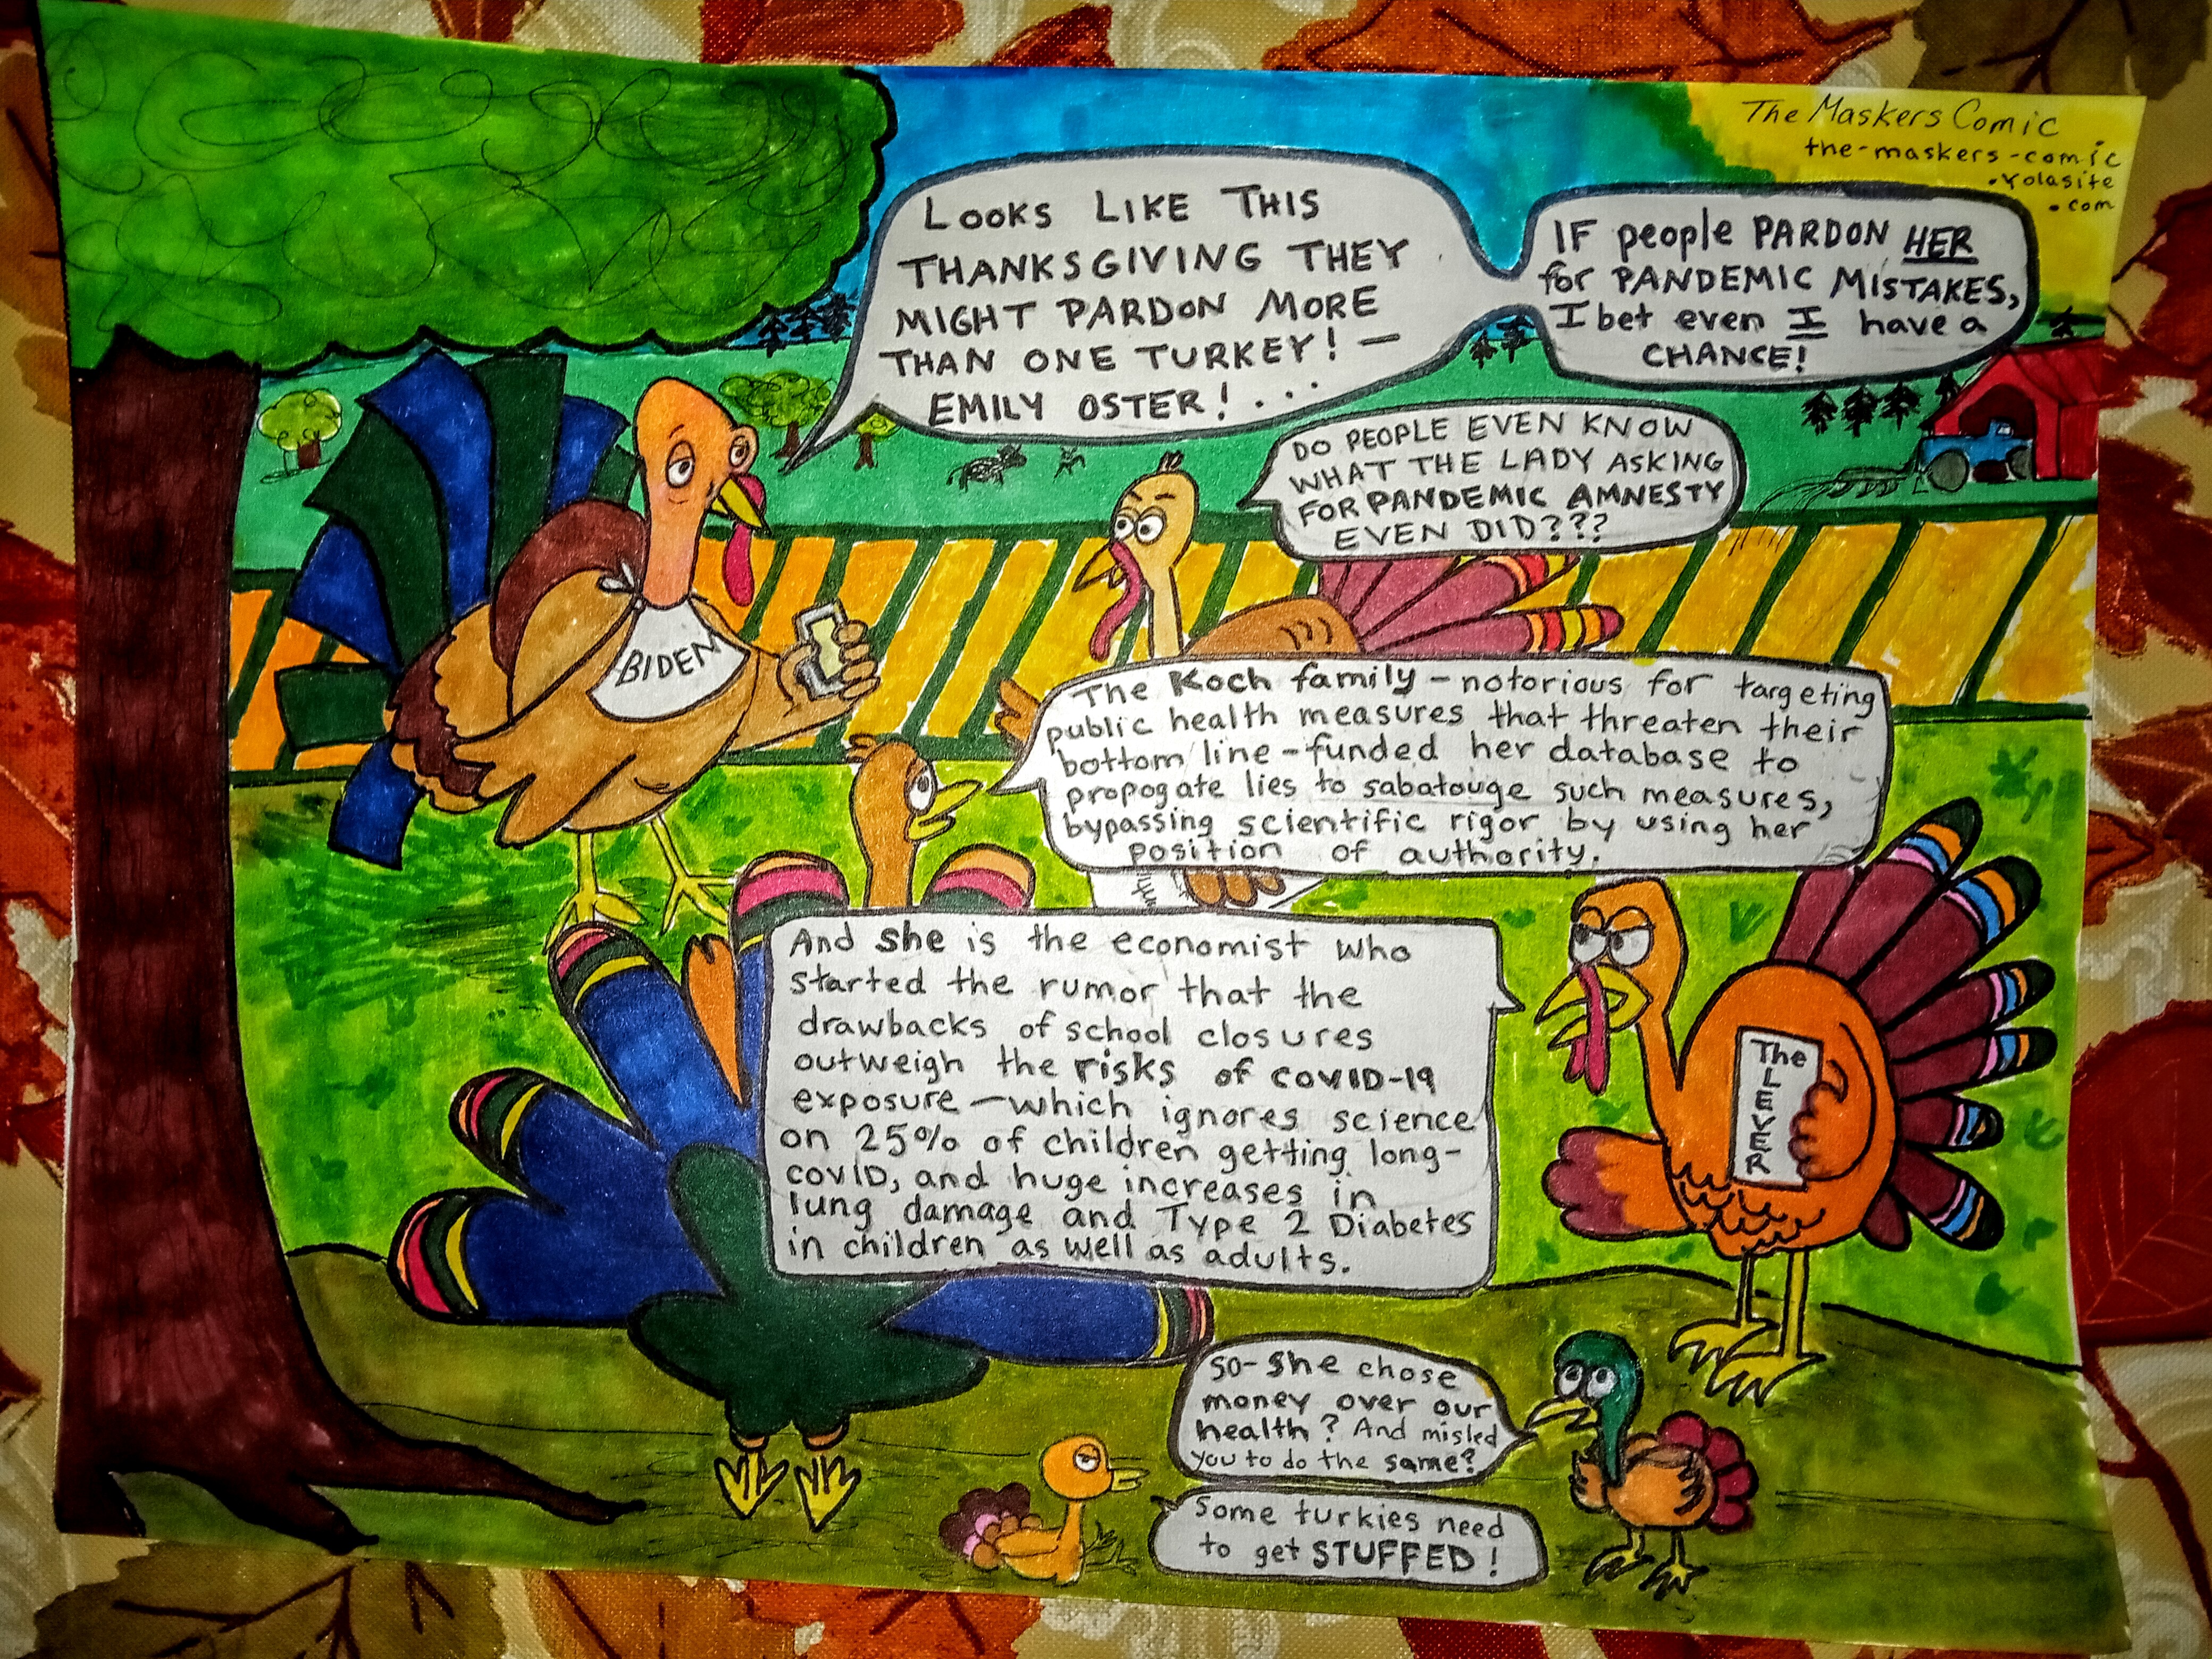 The Maskers Comic
the-maskers-comic
.yolasite
.com
LOOKS LIKE THIS
THANKSGIVING THEY
MIGHT PARDON MORE
THAN ONE TURKEY! —
EMILY OSTER! . . .
IF people PARDON HER
for PANDEMIC MISTAKES,
I bet even I have a
CHANCE!
DO PEOPLE EVEN KNOW
WHAT THE LADY ASKING
FOR PANDEMIC AMNESTY
EVEN DID???
BIDEN
The Koch family – notorious for targeting
public health measures that threaten their
bottom line – funded her database to
propogate lies to sabatouge such measures,
bypassing scientific rigor by using her
position of authority.
And she is the economist who
started the rumor that the
drawbacks of school closures
outweigh the risks of COVID-19
exposure — which ignores science
on 25% of children getting long-
covID, and huge increases in
lung damage and Type 2 Diabetes
in children as well as adults.
The
LEVER
SO- She chose
money over our
health? And misled
you to do the same?
Some turkies need
to get STUFFED!